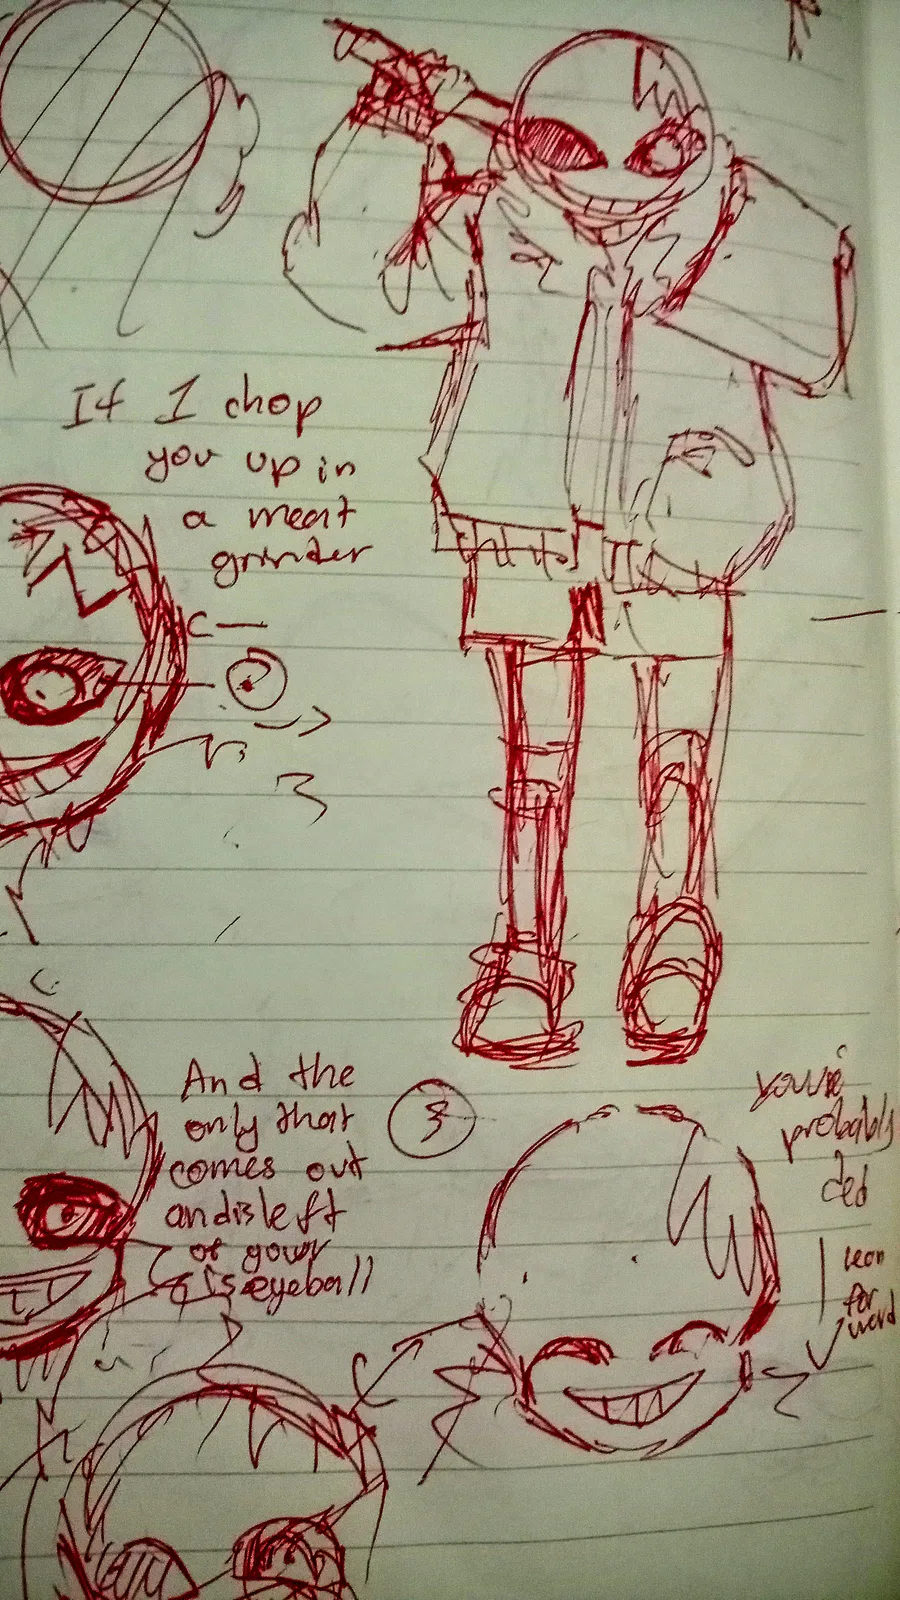 If I chop
you up in
a meat
grinder
And the
only that
comes out
andisleft
of your
is eyeball
3
you're
probably
ded
lean
for
ward